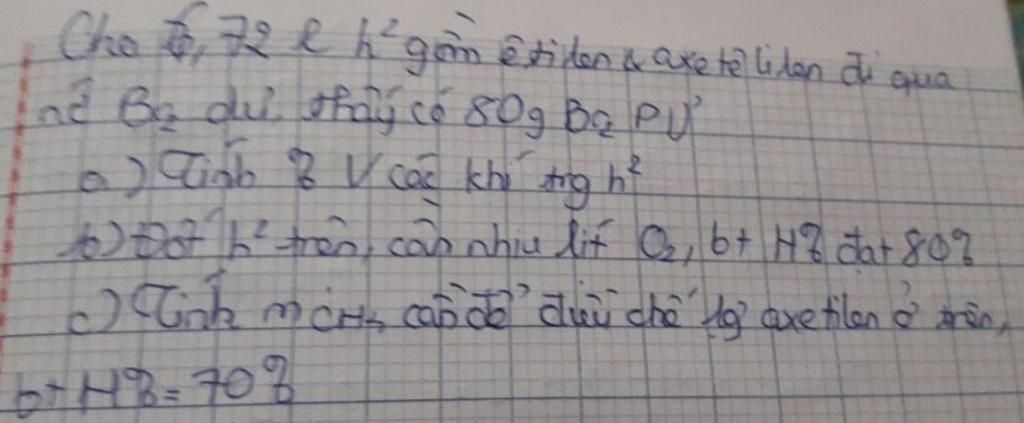 Cho 6,72 l h² gồm êtilen & axetêlilen đi qua
nc̃ Br2 dư. thấy có 80g Br2 PƯ
a) Tính % V các khí trg h²
b) Đốt h² trên, cần nhiu lít O2, bt H% đạt 80%
c) Tính m CH4 cần để điều chế lg axetilen ở trên,
bt H% = 70%